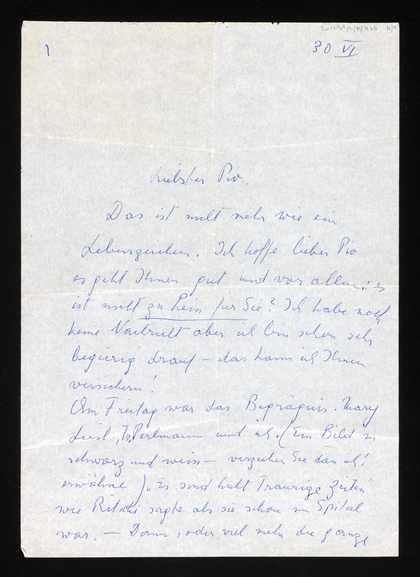 1
30 VI
Liebster Pio.
Das ist nicht mehr wie ein
Lebenszeichen. Ich hoffe lieber Pio
es geht Ihnen gut und vor allem: es
ist nicht zu heiss für Sie? Ich habe noch
keine Nachricht aber ich bin schon sehr
begierig drauf – das kann ich Ihnen
versichern!
Am Freitag war das Begräbnis. Mary
Liesl, Perlmann und ich. (Ein Bild in
schwarz und weiss – verzeihen Sie dass ich's
erwähne). Es sind halt Traurige Zeiten
wie sagte als sie schon im Spital
war. – Dann oder viel mehr die ganze